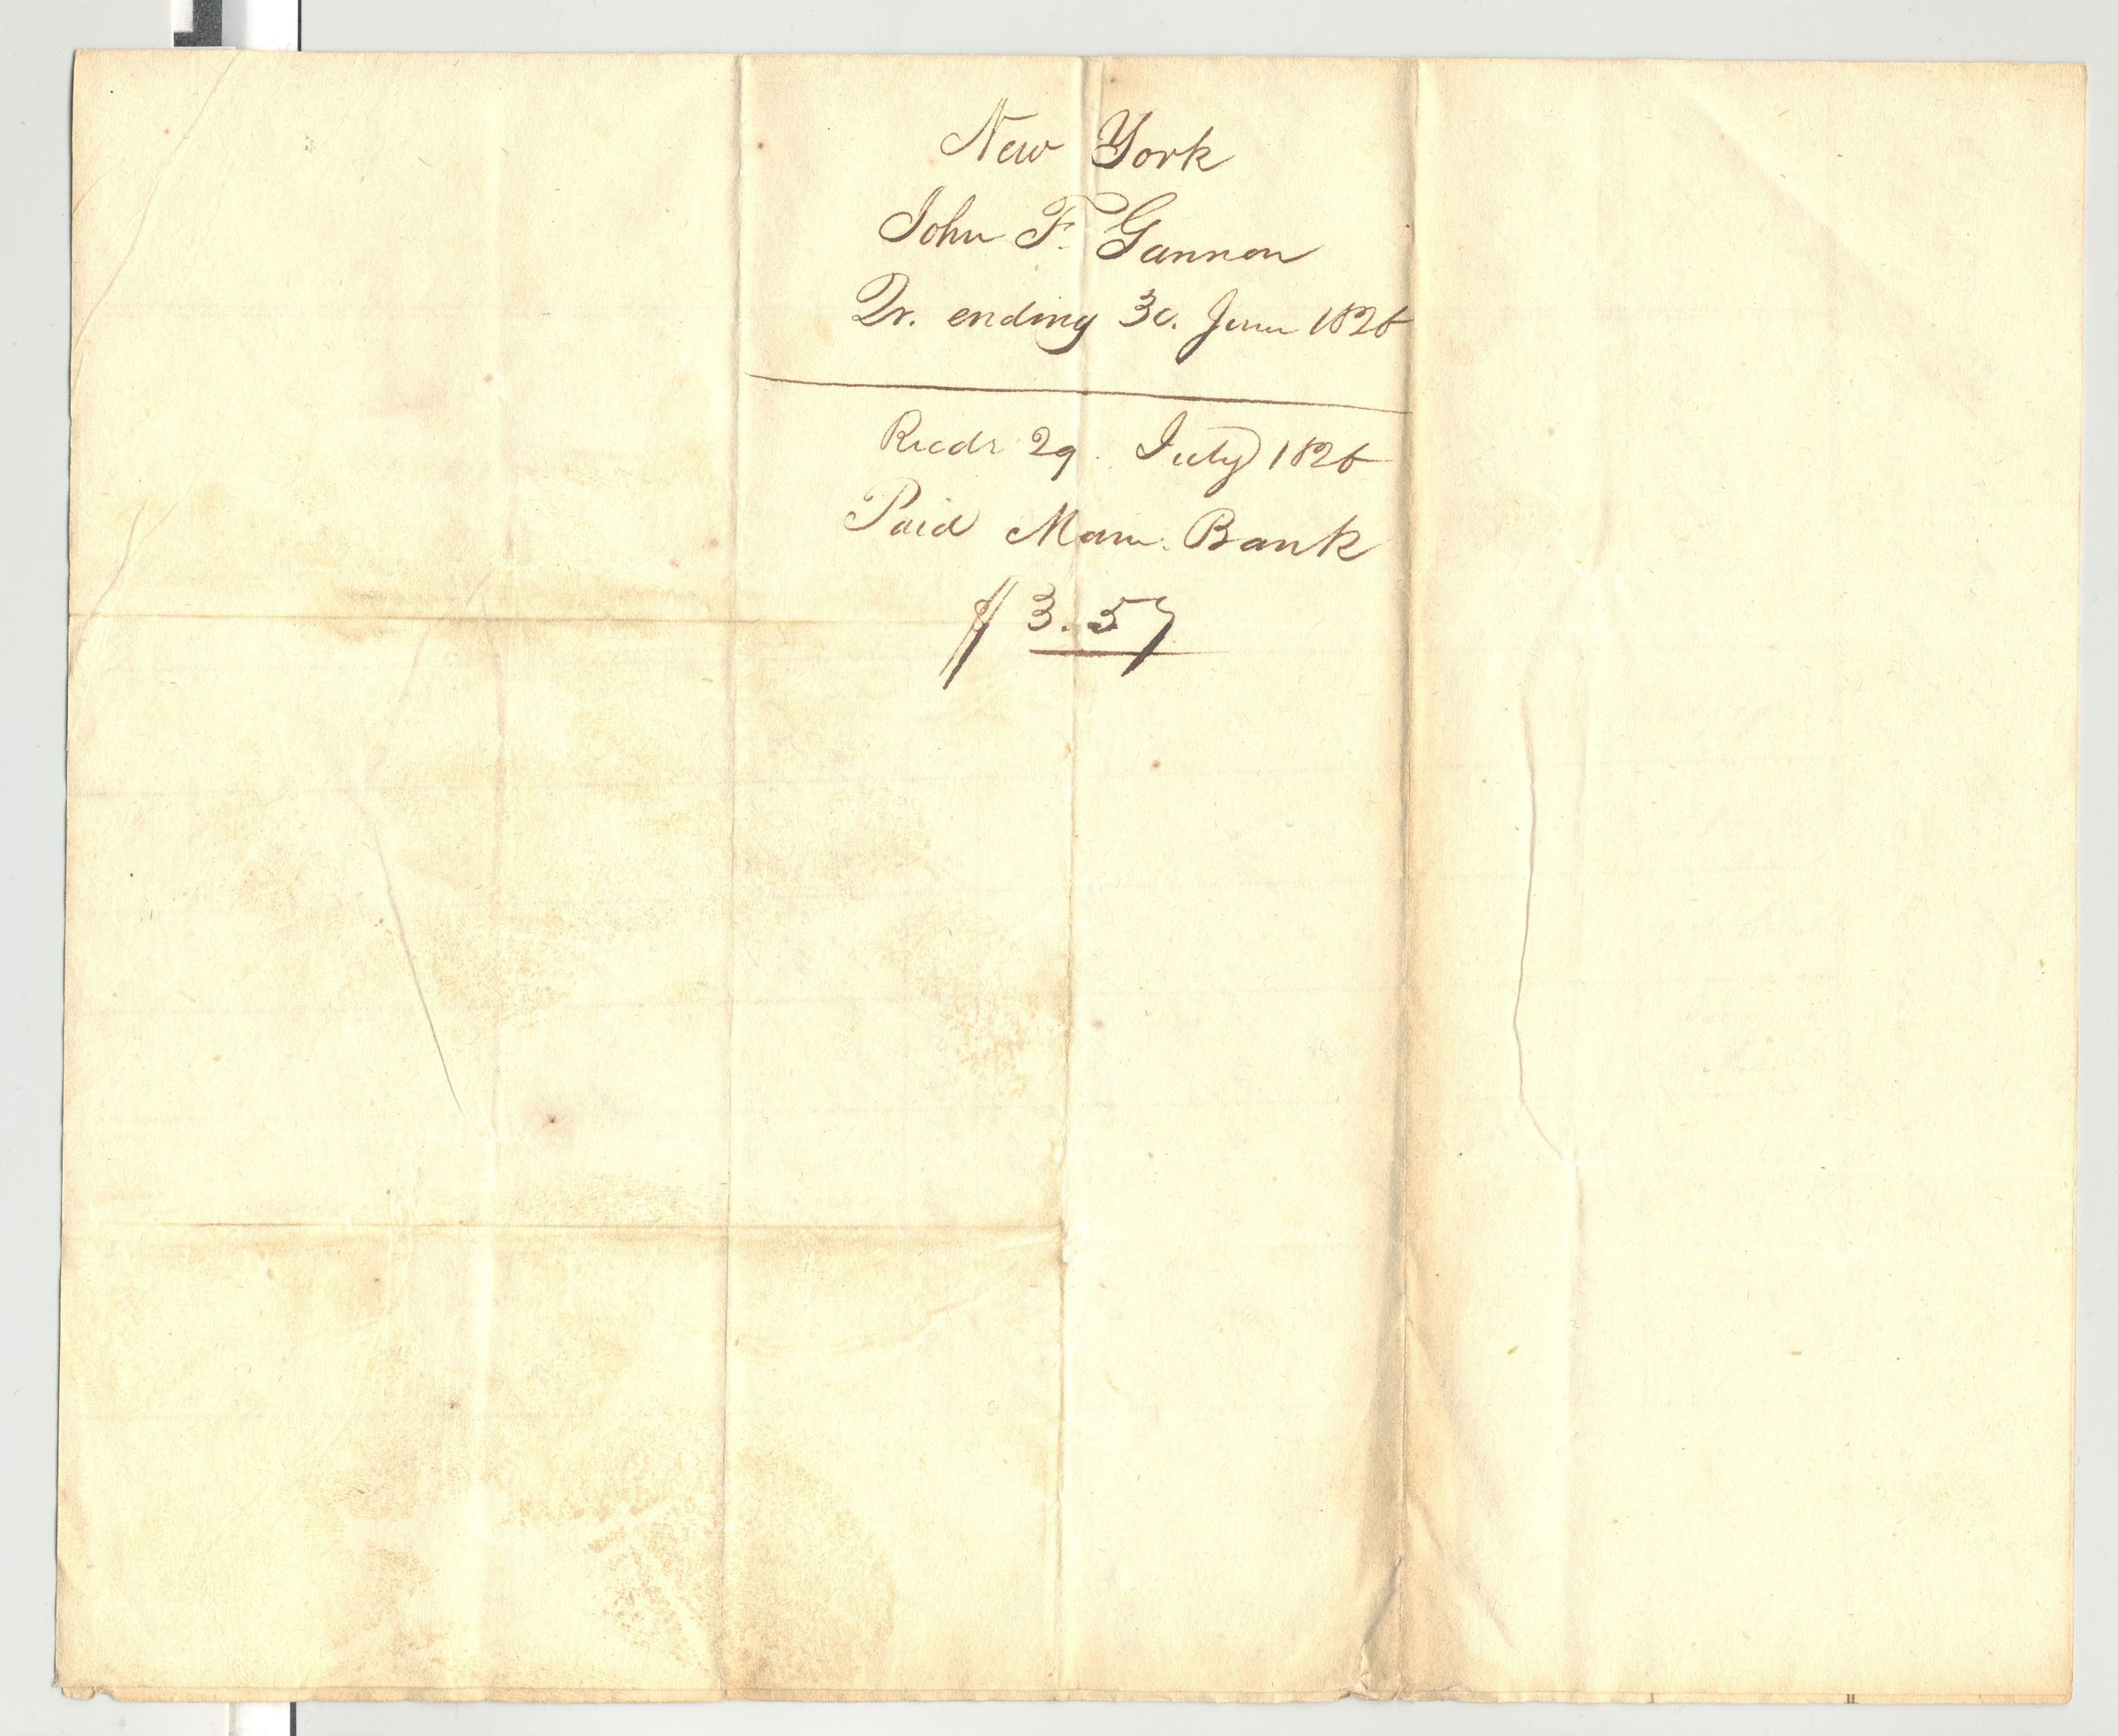 New York
John F. Gannon
Qr. ending 30. June 1826
Recd 29. July 1826
Paid Bank
$ 3.57